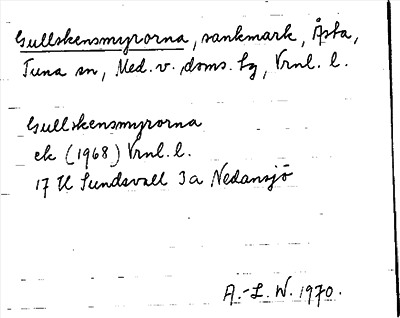 Gullskensmyrorna, sankmark, Åsta,
Tuna sn, Med. v. doms. tg, Vrnl. l.
Gullskensmyrorna
ek (1968) Vrnl. l.
17 H Sundsvall 3a Nedansjö
A.-L. W. 1970.